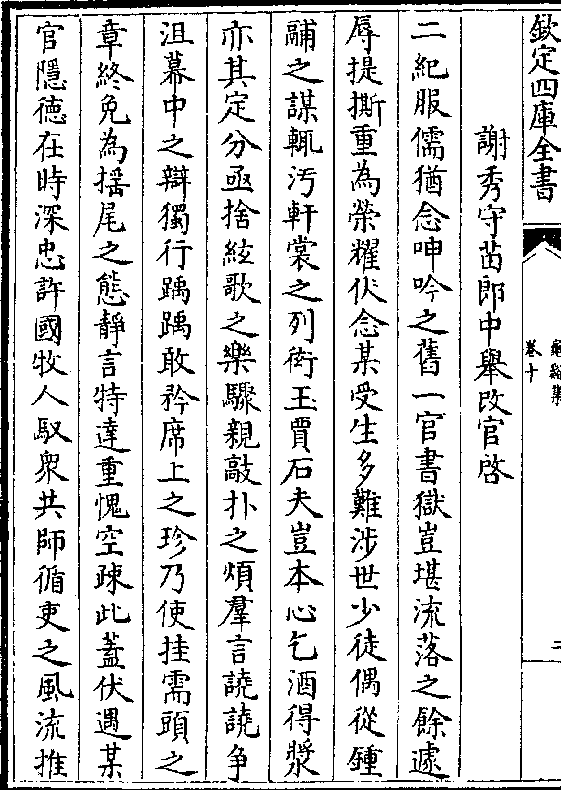 欽定四庫全書
卷十
二
謝秀守苗郎中舉改官啓
二紀服儒猶念呻吟之舊一官書獄豈堪流落之餘遽
辱提撕重為榮耀伏念某受生多難涉世少徒偶從鍾
鬴之謀輒汚軒裳之列衒玉賈石夫豈本心乞酒得漿
亦其定分亟捨絃歌之樂驟親敲扑之煩羣言譊譊争
沮幕中之辯獨行踽踽敢矜席上之珍乃使挂需頭之
章終免為揺尾之態靜言特達重愧空疎此蓋伏遇某
官隱徳在時深忠許國牧人馭衆共師循吏之風流推